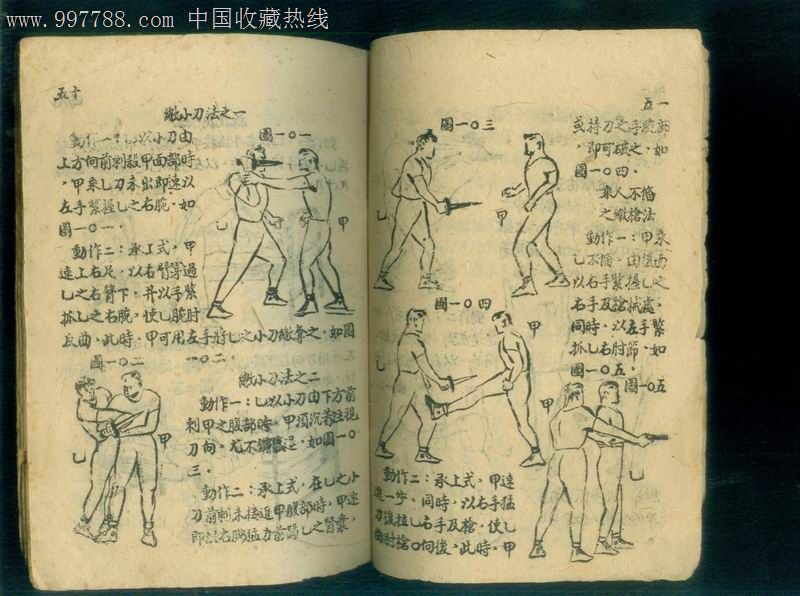 www.997788.com 中国收藏热线
五十
繳小刀法之一
動作一：乙以小刀由
上方向前刺殺甲面部時
，甲乘乙刀未出即速以
左手緊握乙之右腕，如
圖一〇一．
動作二：承上式，甲
速上右足，以右臂穿過
乙之右臂下，并以手緊
抓乙之右腕，使乙腕肘
反曲，此時，甲可用左手將乙之小刀繳奪之，如圖
一〇二．
圖一〇一
甲
乙
圖一〇二
甲
乙
繳小刀法之二
動作一：乙以小刀由下方前
刺甲之腹部時，甲須沉着注視
刀向，尤不
，如圖一〇
三．
動作二：承上式，在乙之小
刀前刺未接近甲腹部時，甲速
即
右脚猛力前踢乙之腎囊，
五一
或持刀之手腕部
，即可破之，如
圖一〇四．
乘人不備
之繳槍法
動作一：甲乘
乙不備，由後面
以右手緊握乙之
右手及槍
處，
同時，以左手緊
抓乙右肘節，如
圖一〇五．
圖一〇三
甲
乙
圖一〇四
甲
乙
圖一〇五
甲
乙
動作二：承上式，甲速
進一步，同時，以右手猛
力後拉乙右手及槍，使乙
曲肘槍口向後，此時，甲